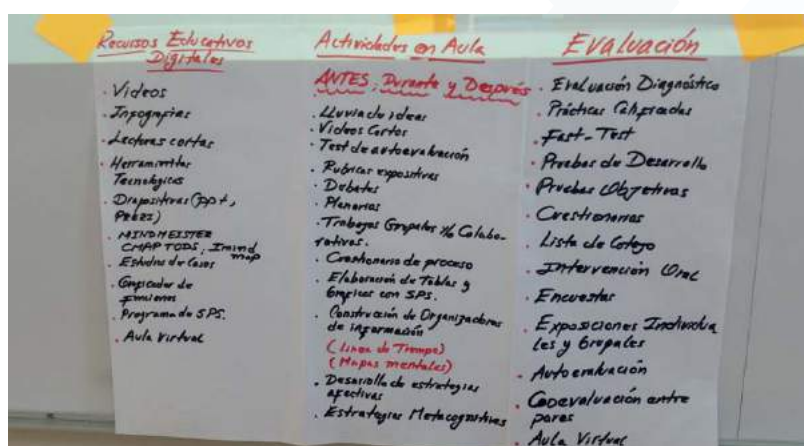 Recursos Educativos
Digitales
. Videos
. Infografias
. Lecturas cortas
. Herramientas
Tecnológicas
. Diapositivas (ppt,
Prezi)
. MINDMEISTER
CMAP TOOLS, Imind
map
. Estudios de Casos
. Graficador de
funciones
. Programa de SPS.
. Aula Virtual
Actividades en Aula
ANTES, Durante y Después
. Lluvia de ideas
. Videos Cortos
. Test de autoevaluación
. Rúbricas expositivas
. Debates
. Plenarias
. Trabajos Grupales Colabo-
rativos.
. Cuestionario de proceso
. Elaboración de Tablas y
Gráficos con SPS.
. Construcción de Organizadores
de información
(Linea de Tiempo)
(Mapas mentales)
. Desarrollo de estrategias
afectivas
. Estrategias Metacognitivas
Evaluación
. Evaluación Diagnóstica
. Prácticas Calificadas
. Fast-Test
. Pruebas de Desarrollo
. Pruebas Objetivas
. Cuestionarios
. Lista de Cotejo
. Intervención Oral
. Encuestas
. Exposiciones Individua
les y Grupales
. Autoevaluación
. Coevaluación entre
pares
. Aula Virtual